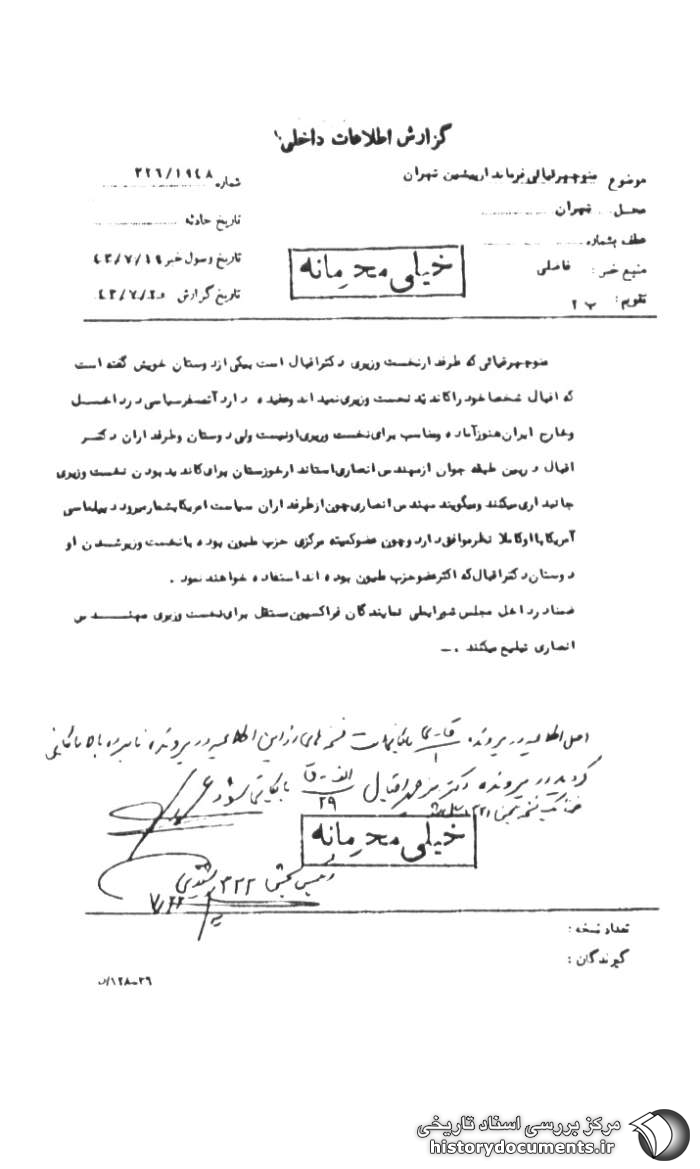 گزارش اطلاعات داخلی
موضوع منوچهر قیائی فرماندار پیشین تهران
شماره ۳۲۶/۱۹۴۸
محل تهران
تاریخ حادثه
عطف بشماره
تاریخ وصول خبر ۴۳/۷/۱۹
منبع خبر: فاضلی
خیلی محرمانه
تاریخ گزارش ۴۳/۷/۲۰
تقویم: ب ۲
منوچهر قیائی که طرفدار نخست وزیری دکتر اقبال است بیکی از دوستان خویش گفته است
که اقبال شخصا خود را کاندید نخست وزیری نمیداند و عقیده دارد آتمسفر سیاسی در داخل
و خارج ایران هنوز آماده و مناسب برای نخست وزیری او نیست ولی دوستان و طرفداران دکتر
اقبال در بین طبقه جوان از مهندس انصاری استاندار خوزستان برای کاندید بودن نخست وزیری
جانبداری میکنند و میگویند مهندس انصاری چون از طرفداران سیاست امریکا بشمار میرود دیپلماسی
آمریکا با او کاملا نظر موافق دارد و چون عضو کمیته مرکزی حزب ملیون بوده با نخست وزیر شدن او
دوستان دکتر اقبال که اکثر عضو حزب ملیون بوده اند استفاده خواهند نمود .
ضمنا در داخل مجلس شورایملی نمایندگان فراکسیون مستقل برای نخست وزیری مهندس
انصاری تبلیغ میکنند .ــ
اصل اطلاعیه در پرونده بایگانی این اطلاعیه در پرونده نامبرده بالا بایگانی
گردید در پرونده دکتر منوچهر اقبال الف - ق ۲۹ بایگانی شود
خیلی محرمانه
رئیس بخش ۳۲۲
۷/۲۲
تعداد نسخه :
گیرندگان :
۱۲۸-۲۶/ت
مرکز بررسی اسناد تاریخی
historydocuments.ir